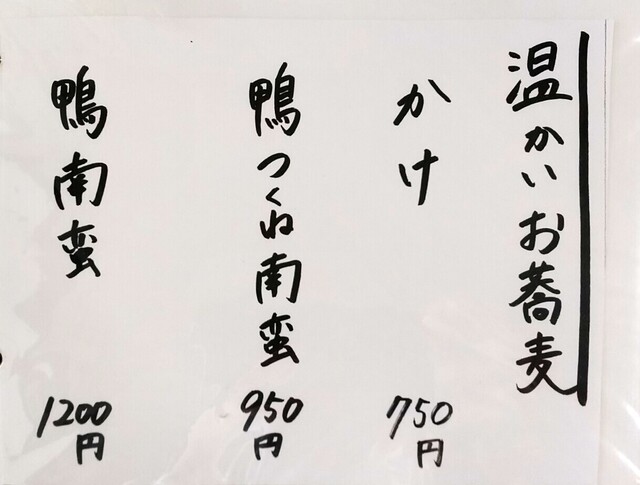 温かいお蕎麦
かけ
750円
鴨つくね南蛮
950円
鴨南蛮
1200円